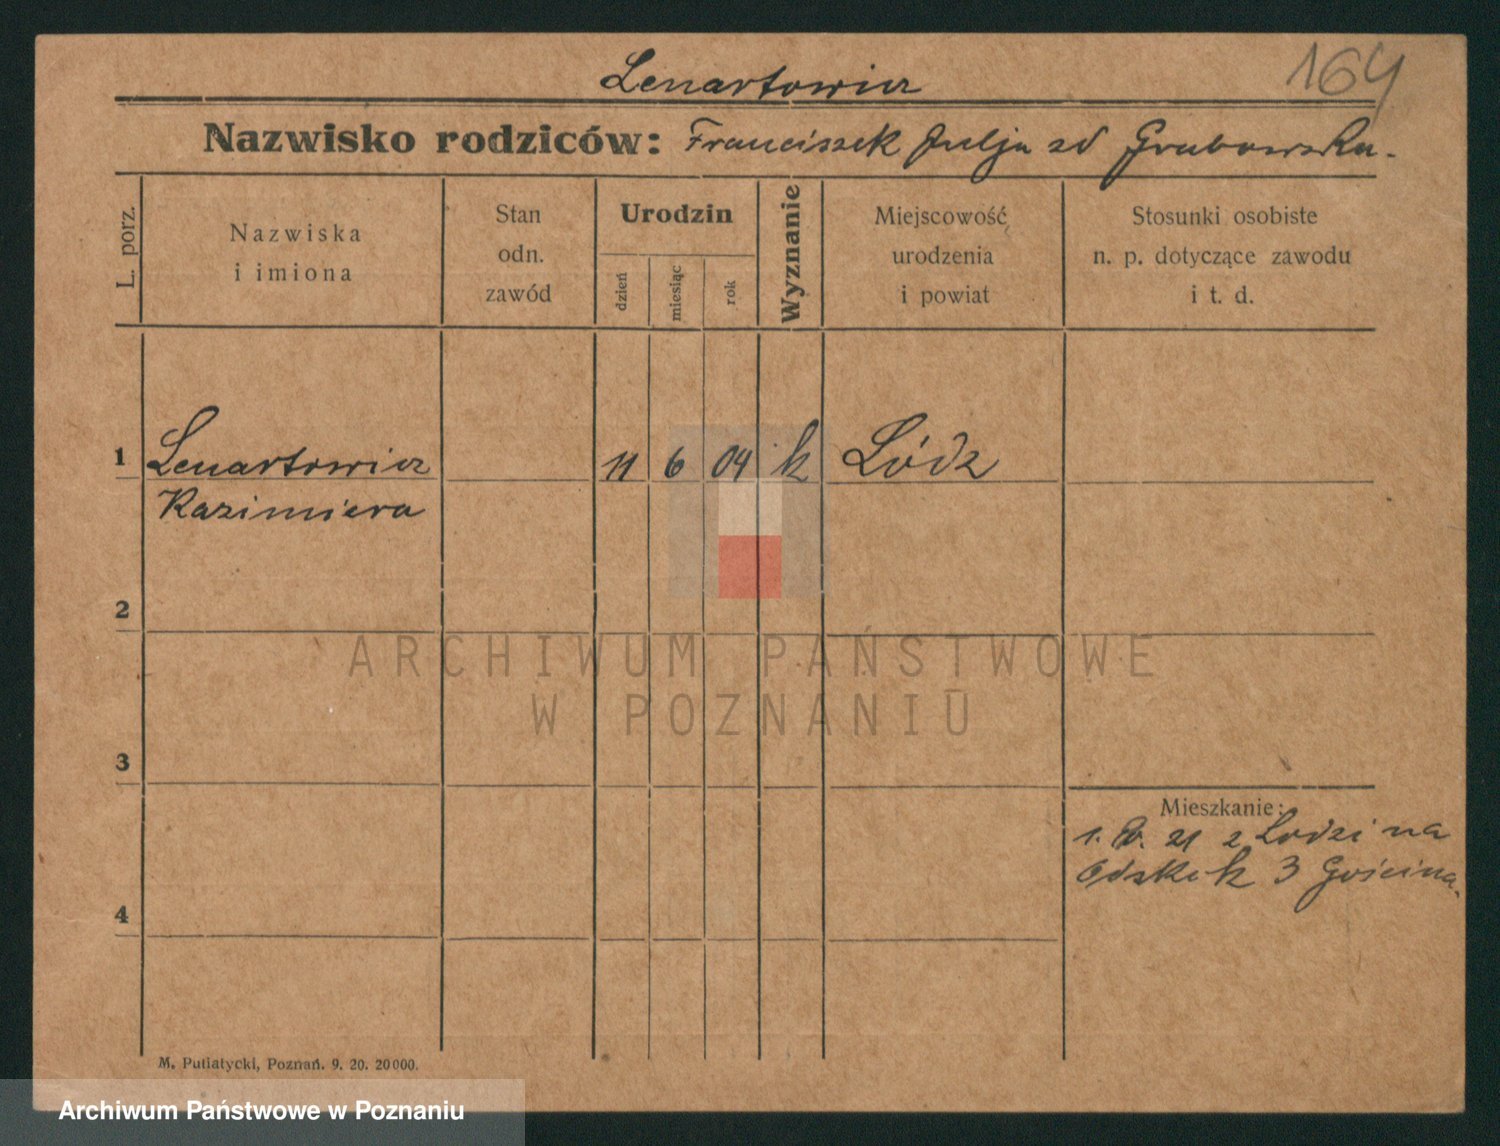 164
Lenartowicz
Nazwisko rodziców: Franciszek Julja zd Grabowska.
L. porz.
Nazwiska
i imiona
Stan
odn.
zawód
Urodzin
dzień
miesiąc
rok
Wyznanie
Miejscowość
urodzenia
i powiat
Stosunki osobiste
n. p. dotyczące zawodu
i t. d.
1 Lenartowicz 11 6 04 k Łódz
Kazimiera
2
ARCHIWUM PAŃSTWOWE
W POZNANIU
3
Mieszkanie:
21 z Lodzi na
3 Gościnna.
4
M. Putiatycki, Poznań. 9. 20. 20000.
Archiwum Państwowe w Poznaniu